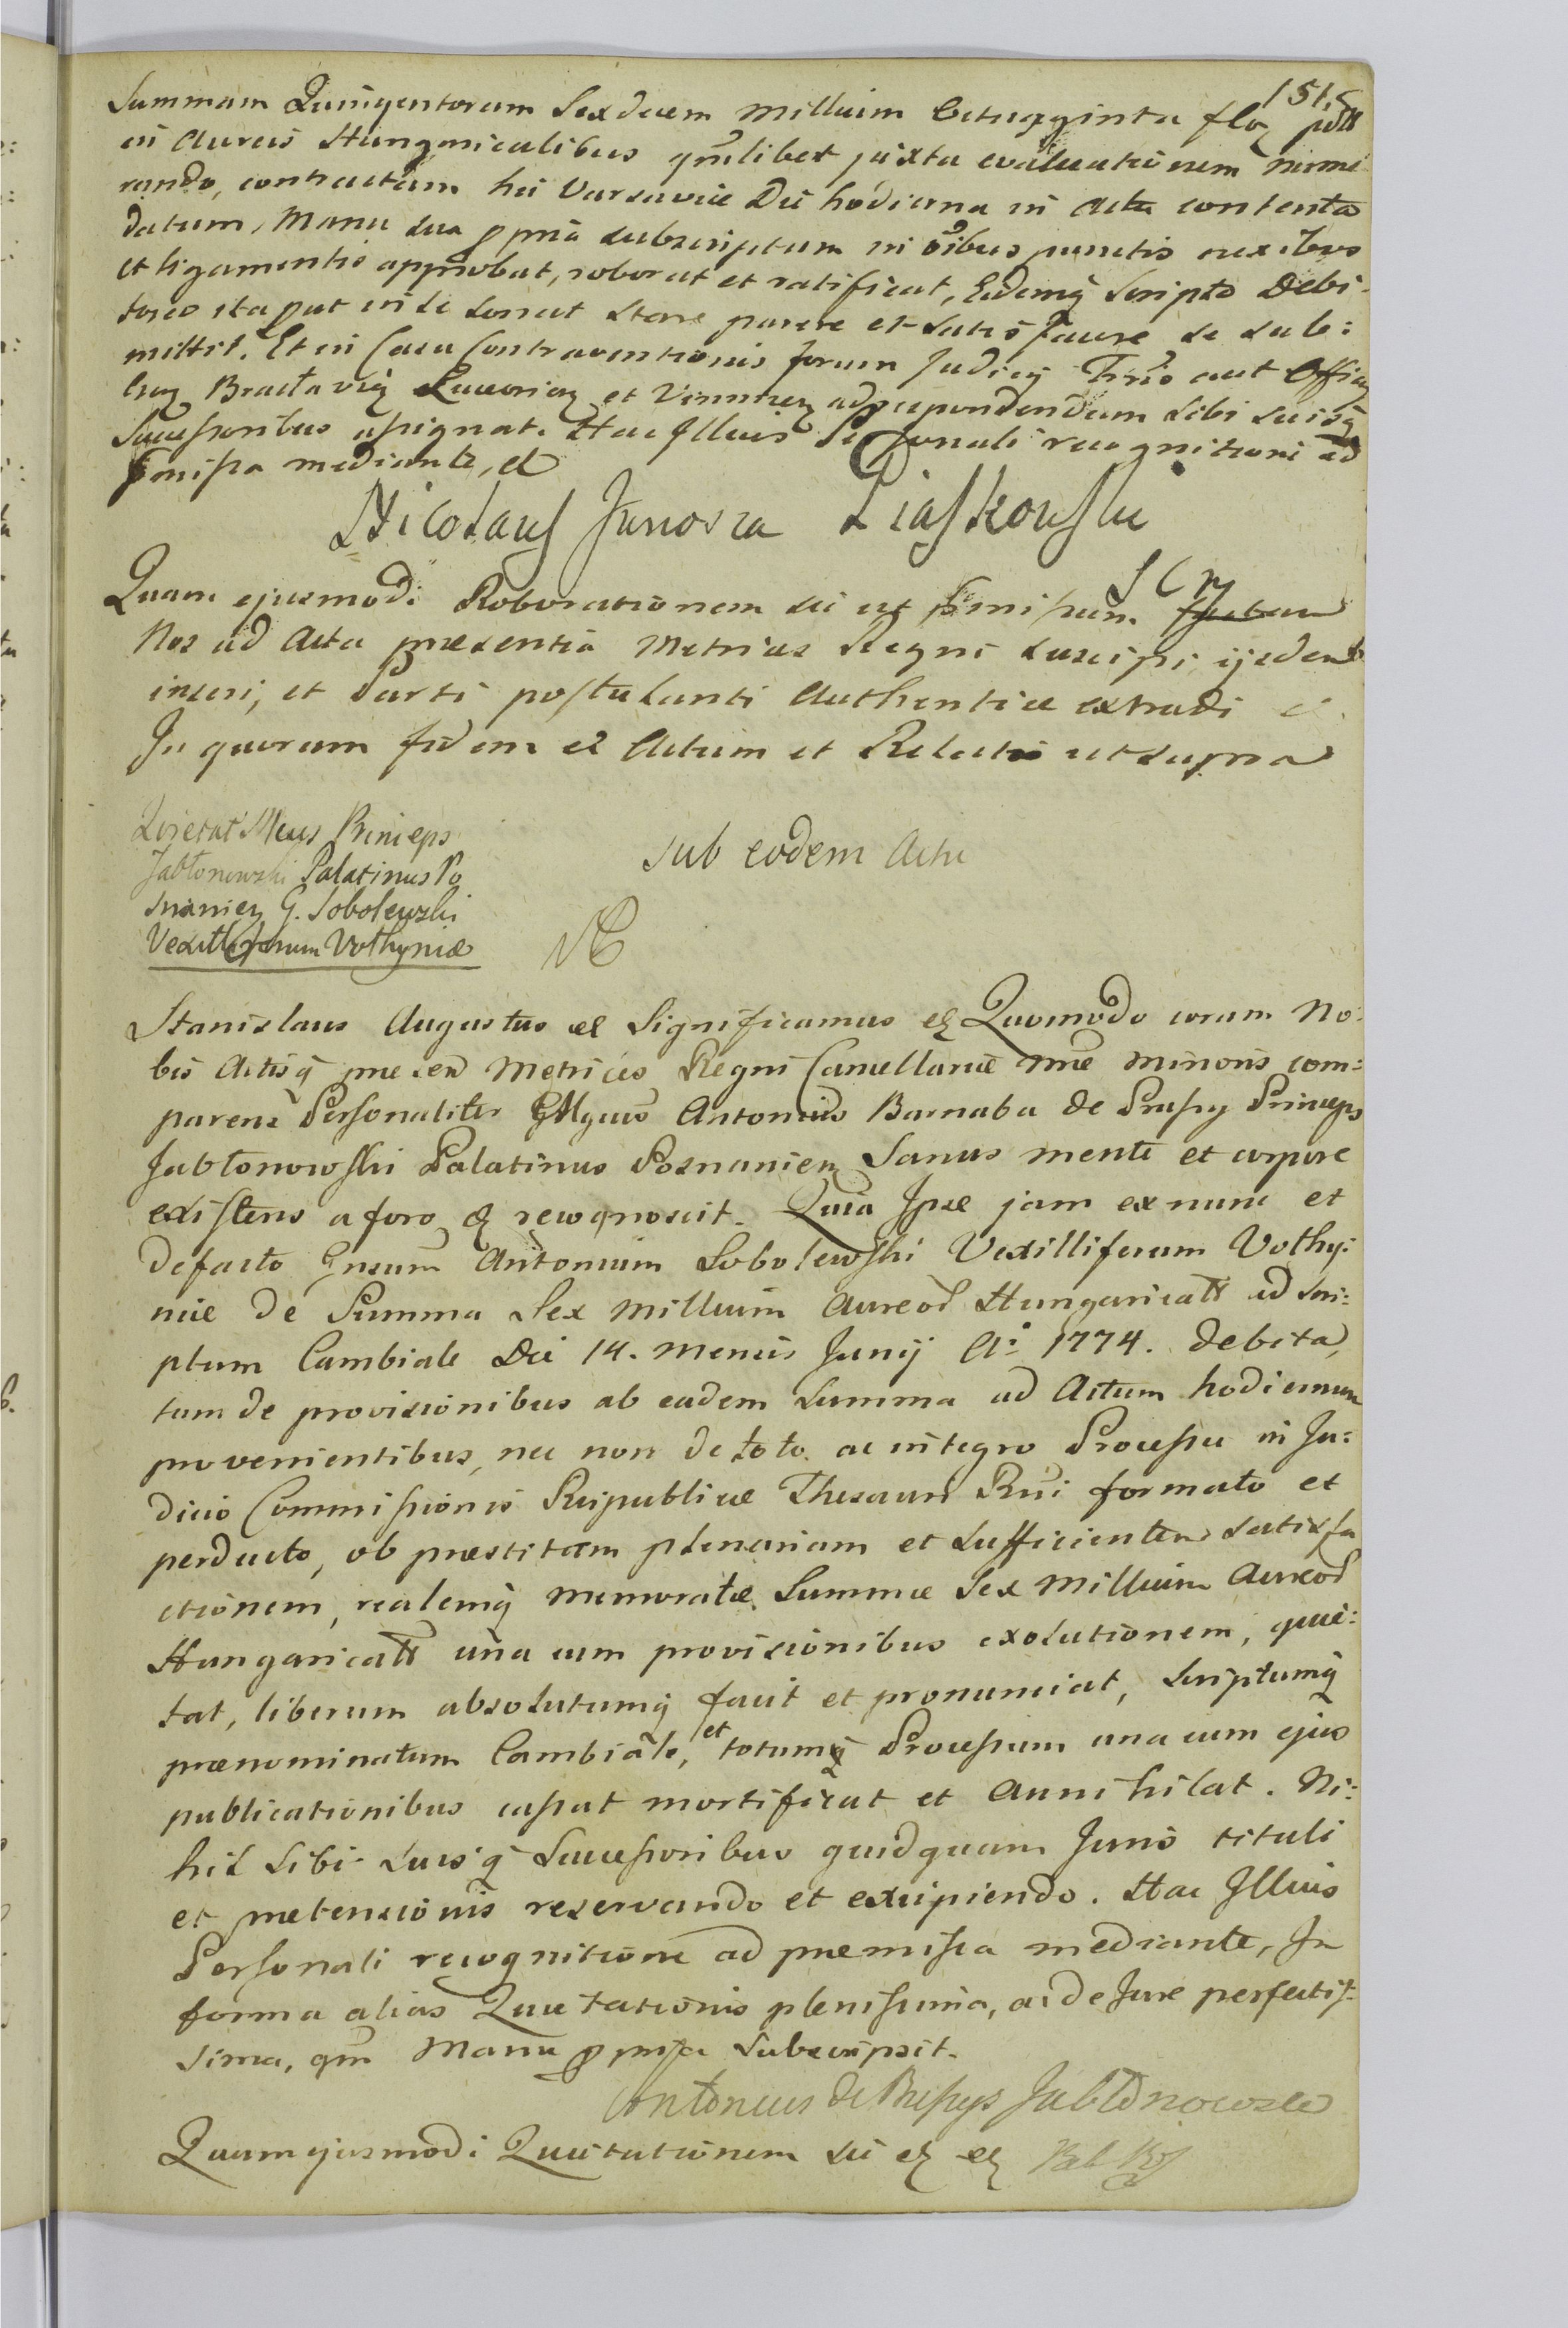 151.
Summam Quingentorum Sexdecem Millium Octuaginta flor poll
in Aureis Hungaricalibus qmlibet juxta evaluationem nume
rando, contractam hic Varsaviæ Die hodierna in Actu contento
datum, Manu sua ppria subscriptum in oibus punctis nexibus
et ligamentis approbat, roborat et ratificat, Eidemq Scripto Debi-
torio ita put in se sonat stare parere et satisfacere se sub:
mittit. Et in Casu Contraventionis forum Judicij Trniô aut Offici
Braclavien Luceorien et Vinnicen ad respondendum sibi suisq
Successoribus assignat. Hac Illius Personali recognitioni ad
pmissa mediante, et
Nicolaus Junosza Piaskowski
SCry
Quam ejusmodi Roborationem sic ut pmissum
Nos ad Acta præsentia Metrices Regni suscipi, ijsdem
inseri, et Parti postulanti Authentice extradi
In quorum fidem et Actum et Relatio ut supra
Quietat Mcus Princeps
Jabłonowski Palatinus Po
snanien G. Sobolewski
Vexilliferum Volhyniæ
Sub eodem Actu
Stanislaus Augustus et Significamus et Quomodo coram No:
bis Actisq præsen Metrices Regni Cancellariæ nræ minoris com:
parens Personaliter Mgcus Antonius Barnaba de Prussy Princeps
Jabłonowski Palatinus Posnanien Sanus mente et corpore
existens a foro et recognoscit. Quia Ipse jam ex nunc et
defacto Gnsum Antonium Sobolewski Vexilliferum Volhy:
niæ de Summa Sex Millium Aureod Hungaricall ad Scri:
ptum Cambiale Die 14. Mensis Junij Ai 1774. debita,
tum de provisionibus ab eadem Summa ad Actum hodiernum
provenientibus, nec non de toto ac integro Processu in Ju:
dicio Commissionis Reipublicæ Thesauri Rni formato et
perducto, ob præstitam plenariam et sufficientem satisfa
ctionem, realemq memoratæ Summæ Sex Millium Aureod
Hungaricall una cum provisionibus exolutionem, quie:
tat, liberum absolutumq facit et pronunciat, Scriptumq
prænominatum Cambiale, et totumq Processum una cum ejus
publicationibus cassat mortificat et annihilat. Ni:
hil sibi suisq Successoribus quidquam Juris tituli
et prætensionis reservando et excipiendo. Hac Illius
Personali recognitione ad præmissa mediante, In
forma alias Quietationis plenissima, ac de Jure perfectis:
sima, qm Manu ppria Subscripsit.
Antonius de Prussys Jabłonowski
Quam ejusmodi Quietationem sic et et